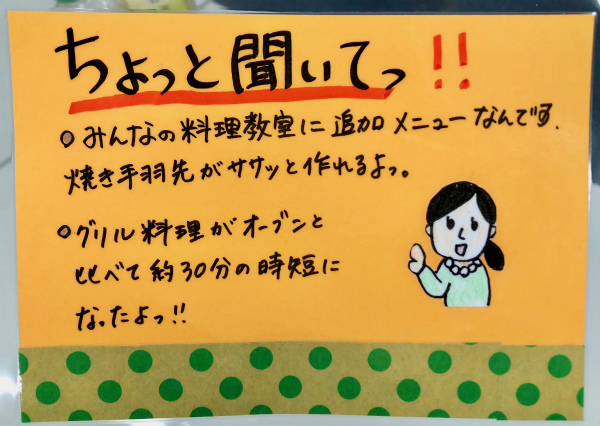 ちょっと聞いてっ!!
○みんなの料理教室に追加メニューなんです.
焼き手羽先がササッと作れるよっ。
○グリル料理がオーブンと
比べて約30分の時短に
なったよっ!!